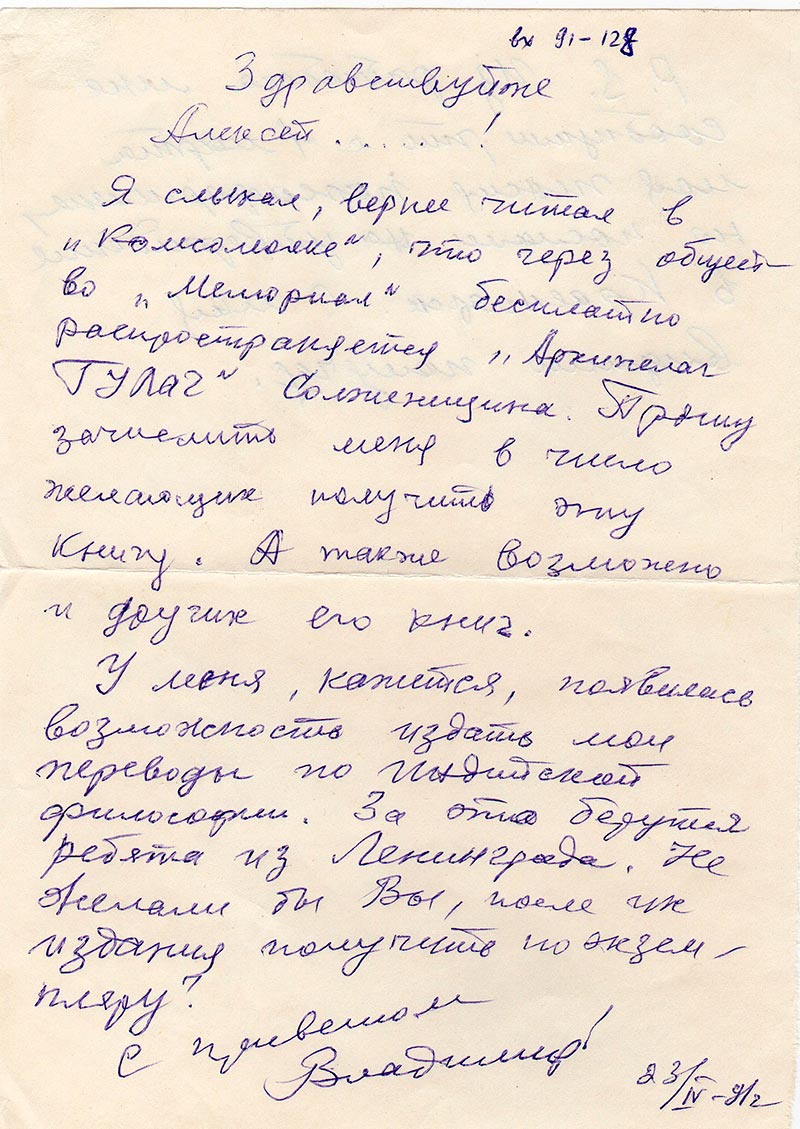 вх 91-128
Здравствуйте
Алексей . . . . . !
Я слыхал, вернее читал в
„Комсомолке“, что через общест-
во „Мемориал“ бесплатно
распространяется „Архипелаг
ГУЛаг“ Солженицина. Прошу
зачислить меня в число
желающих получить эту
книгу. А также возможно
и других его книг.
У меня, кажется, появилась
возможность издать мои
переводы по индийской
философии. За это берутся
ребята из Ленинграда. Не
желали бы Вы, после их
издания получить по экзем-
пляру?
С приветом
Владимир!
23/IV-91г